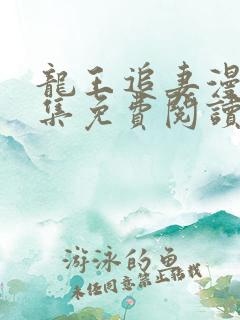 龍王追妻漫
集免費閱讀
游泳的魚
未经同意禁止转载